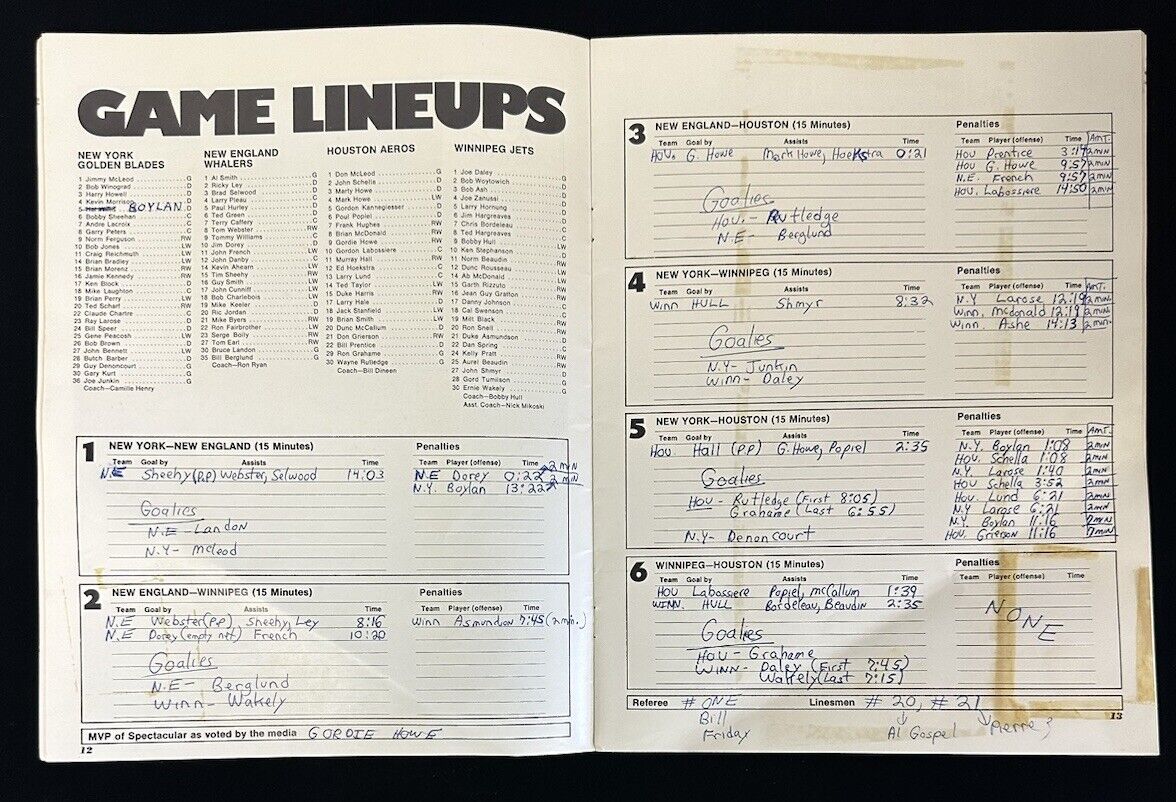 GAME LINEUPS
NEW YORK
GOLDEN BLADES
1 Jimmy McLeod G
2 Bob Winograd D
3 Harry Howell D
4 Kevin Morrison D
5 BOYLAN D
6 Bobby Sheehan C
7 Andre Lacroix C
8 Garry Peters C
9 Norm Ferguson RW
10 Bob Jones LW
11 Craig Reichmuth LW
14 Brian Bradley LW
15 Brian Morenz RW
16 Jamie Kennedy RW
17 Ken Block D
18 Mike Laughton C
19 Brian Perry LW
20 Ted Scharf RW
22 Claude Chartre C
23 Ray Larose D
24 Bill Speer D
25 Gene Peacosh LW
26 Bob Brown D
27 John Bennett LW
28 Butch Barber D
29 Guy Denoncourt G
30 Gary Kurt G
36 Joe Junkin G
Coach—Camille Henry
NEW ENGLAND
WHALERS
1 Al Smith G
2 Ricky Ley D
3 Brad Selwood D
4 Larry Pleau C
5 Paul Hurley D
6 Ted Green D
7 Terry Caffery C
8 Tom Webster RW
9 Tommy Williams C
10 Jim Dorey D
11 John French LW
12 John Danby C
14 Kevin Ahearn LW
15 Tim Sheehy RW
16 Guy Smith LW
17 John Cunniff LW
18 Bob Charlebois LW
19 Mike Keeler D
20 Ric Jordan D
21 Mike Byers RW
22 Ron Fairbrother LW
23 Serge Boily RW
27 Tom Earl RW
30 Bruce Landon G
35 Bill Berglund G
Coach—Ron Ryan
HOUSTON AEROS
1 Don McLeod G
2 John Schella D
3 Marty Howe D
4 Mark Howe LW
5 Gordon Kannegiesser D
6 Poul Popiel D
7 Frank Hughes RW
8 Brian McDonald RW
9 Gordie Howe RW
10 Gordon Labossiere C
11 Murray Hall RW
12 Ed Hoekstra C
13 Larry Lund C
14 Ted Taylor LW
15 Duke Harris RW
17 Larry Hale D
18 Jack Stanfield LW
19 Brian Smith LW
20 Dunc McCallum D
21 Don Grierson RW
22 Bill Prentice D
29 Ron Grahame G
30 Wayne Rutledge G
Coach—Bill Dineen
WINNIPEG JETS
1 Joe Daley G
2 Bob Woytowich D
3 Bob Ash D
4 Joe Zanussi D
5 Larry Hornung D
6 Jim Hargreaves D
7 Chris Bordeleau C
8 Ted Hargreaves LW
9 Bobby Hull LW
10 Ken Stephanson D
11 Norm Beaudin RW
12 Dunc Rousseau LW
14 Ab McDonald LW
15 Garth Rizzuto C
16 Jean Guy Gratton RW
17 Danny Johnson C
18 Cal Swenson C
19 Milt Black RW
20 Ron Snell RW
21 Duke Asmundson RW
22 Dan Spring C
24 Kelly Pratt RW
25 Aurel Beaudin RW
27 John Shmyr D
28 Gord Tumilson G
30 Ernie Wakely G
Coach—Bobby Hull
Asst. Coach—Nick Mikoski
1 NEW YORK—NEW ENGLAND (15 Minutes) Penalties
Team Goal by Assists Time Team Player (offense) Time
N.E Sheehy (P.P) Webster, Selwood 14:03 N.E Dorey 0:22 2 min
N.Y. Boylan 13:22 2 min
Goalies
N.E - Landon
N.Y - McLeod
2 NEW ENGLAND—WINNIPEG (15 Minutes) Penalties
Team Goal by Assists Time Team Player (offense) Time
N.E Webster (P.P) Sheehy, Ley 8:16 Winn Asmundson 7:45 (2 min.)
N.E Dorey (empty net) French 10:20
Goalies
N.E - Berglund
Winn - Wakely
MVP of Spectacular as voted by the media GORDIE HOWE
12
3 NEW ENGLAND—HOUSTON (15 Minutes) Penalties
Team Goal by Assists Time Team Player (offense) Time Amt.
HOU. G. Howe Mark Howe, Hoekstra 0:21 HOU Prentice 3:17 2 min
HOU G. Howe 9:57 2 min
N.E. French 9:57 2 min
HOU. Labossiere 14:50 2 min
Goalies
HOU. - Rutledge
N.E - Berglund
4 NEW YORK—WINNIPEG (15 Minutes) Penalties
Team Goal by Assists Time Team Player (offense) Time Amt.
Winn HULL Shmyr 8:32 N.Y Larose 12:19 2 min.
Winn. Mcdonald 12:19 2 min.
Winn. Ashe 14:13 2 min.
Goalies
N.Y - Junkin
Winn - Daley
5 NEW YORK—HOUSTON (15 Minutes) Penalties
Team Goal by Assists Time Team Player (offense) Time Amt.
HOU. Hall (P.P) G. Howe, Popiel 2:35 N.Y. Boylan 1:08 2 min
HOU. Schella 1:08 2 min
N.Y Larose 1:40 2 min
HOU Schella 3:52 2 min
HOU. Lund 6:21 2 min
N.Y Larose 6:21 2 min
N.Y. Boylan 11:16 7 min
HOU. Grierson 11:16 7 min
Goalies
HOU - Rutledge (First 8:05)
Grahame (Last 6:55)
N.Y - Denoncourt
6 WINNIPEG—HOUSTON (15 Minutes) Penalties
Team Goal by Assists Time Team Player (offense) Time
HOU Labossiere Popiel, McCallum 1:39
WINN. HULL Bordeleau, Beaudin 2:35
NONE
Goalies
HOU - Grahame
WINN - Daley (First 7:45)
Wakely (Last 7:15)
Referee # ONE Linesmen # 20, # 21
Bill
Friday
Al Gospel Pierre ?
13